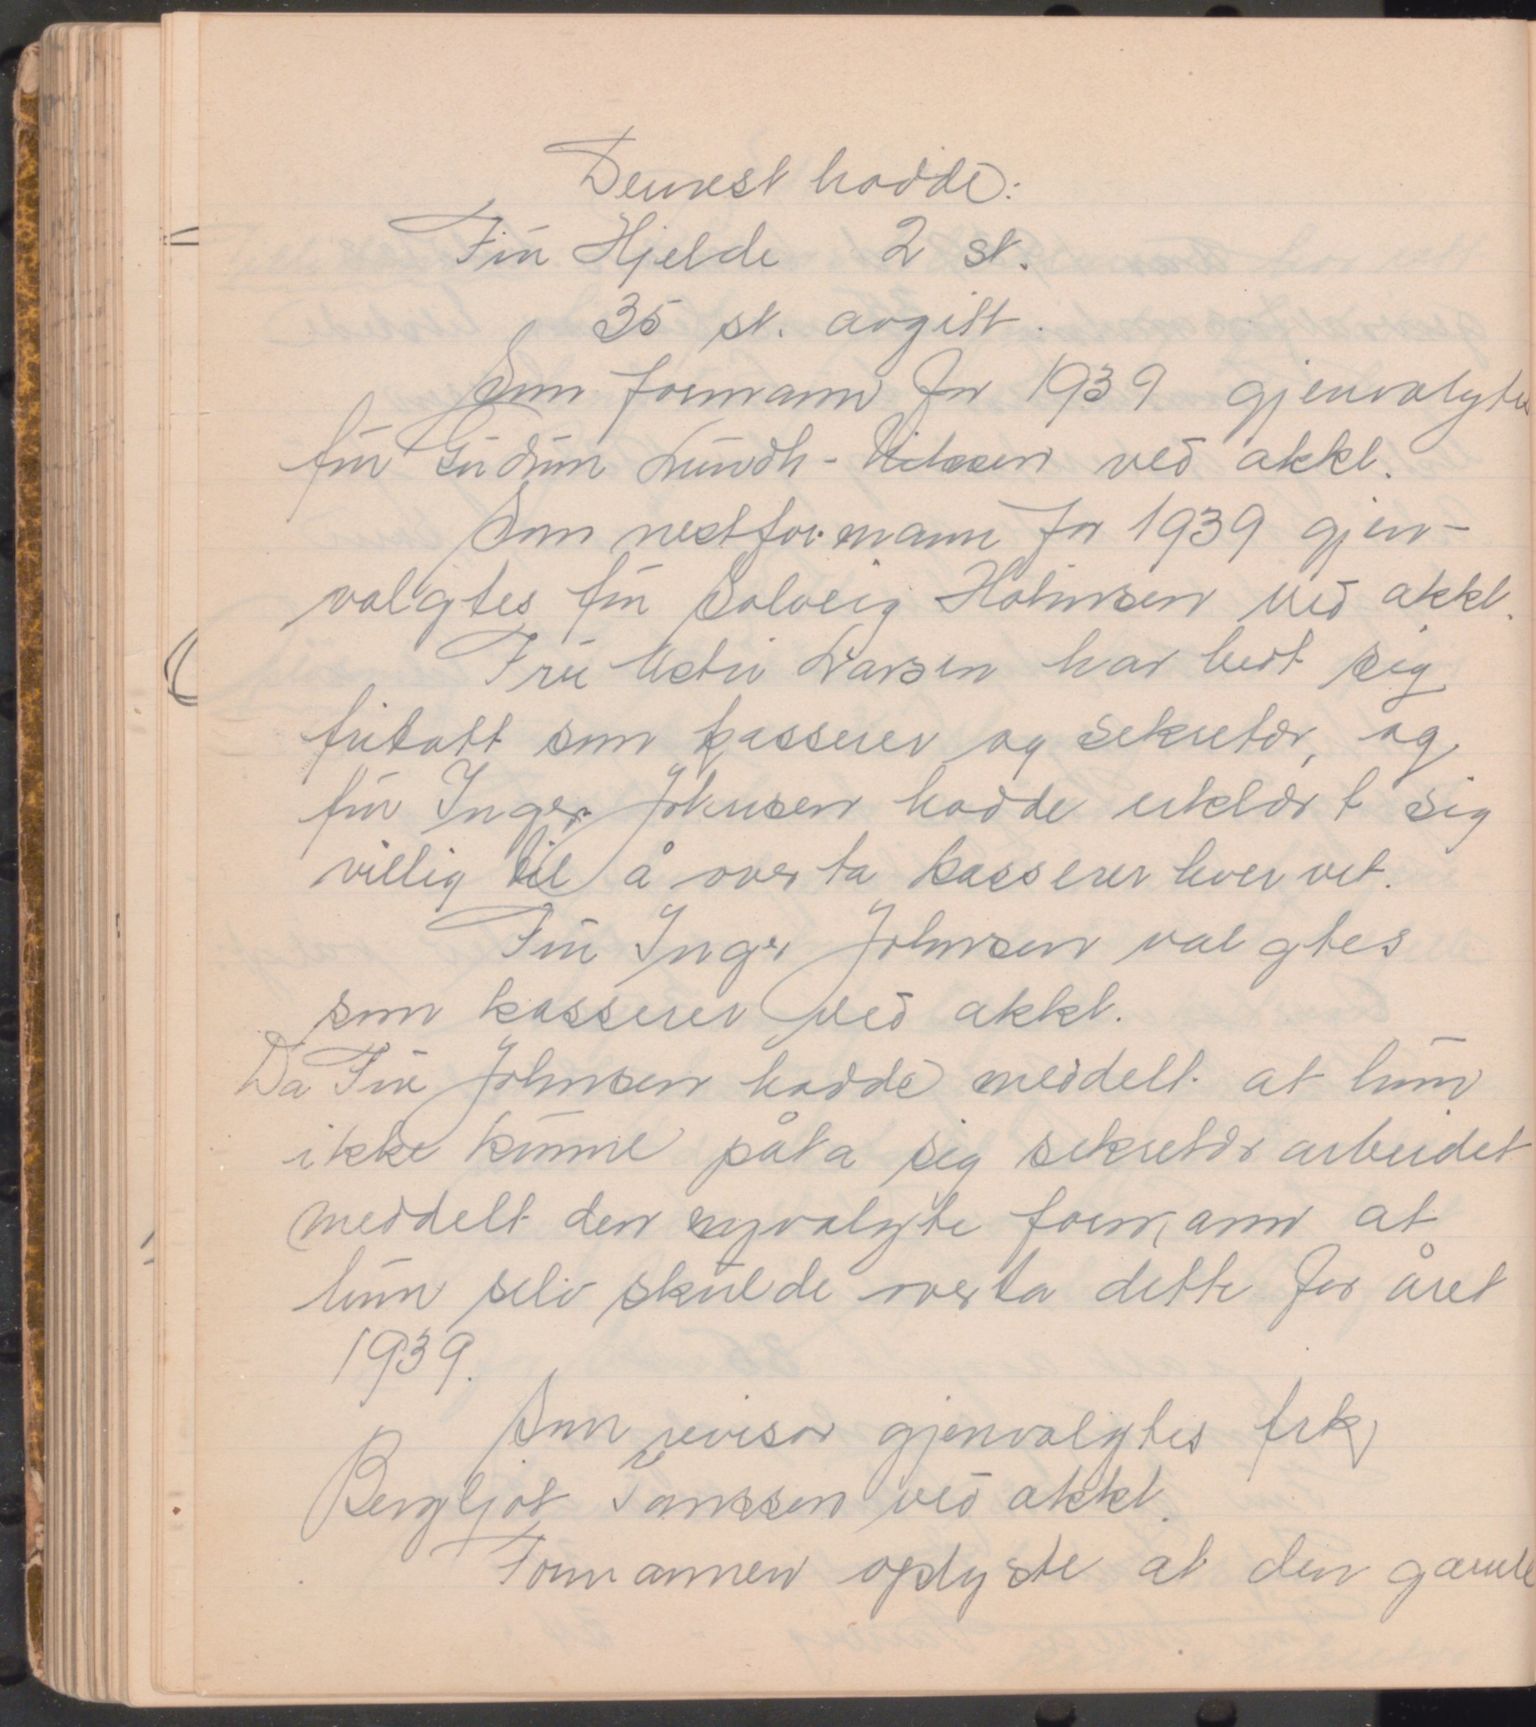 Dernest hadde:
Fru Hjelde 2 st.
35 st. avgitt.
Som formann for 1939 gjenvalgtes
fru Gudrun Lundh-Nilssen ved akkl.
Som nestformann for 1939 gjen-
valgtes fru Solveig Holmsen ved akkl.
Fru Larsen har bedt sig
fritatt som kasserer og sekretær, og
fru Inger Johnsen hadde erklært sig
villig til å overta kassererhvervet.
Fru Inger Johnsen valgtes
som kasserer ved akkl.
Da Fru Johnsen hadde meddelt at hun
ikke kunne påta sig sekretærarbeidet
meddelt den nyvalgte formann at
hun selv skulde overta dette for året
1939.
Som revisor gjenvalgtes frk.
Bergljot ved akkl.
Formannen oplyste at den gamle